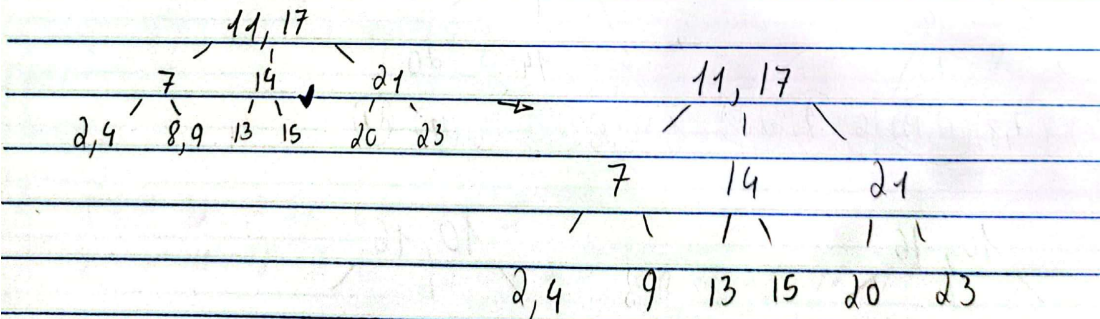 11,17
7 14 21
2,4 8,9 13 15 20 23
→
11,17
7 14 21
2,4 9 13 15 20 23